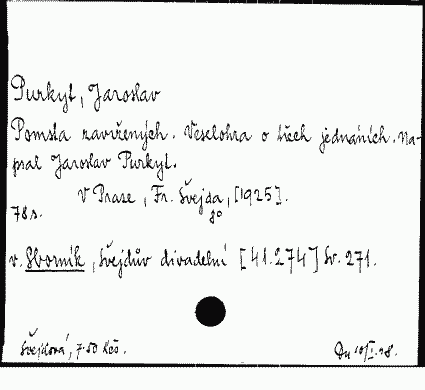 Purkyt, Jaroslav
Pomsta zavržených. Veselohra o třech jednáních. Na-
psal Jaroslav Purkyt.
V Praze, Fr. Švejda, [1925].
78 s. 8°
v. Sborník, Švejdův divadelní [41.274] Sv. 271.
Švejdová, 7·50 Kčs.